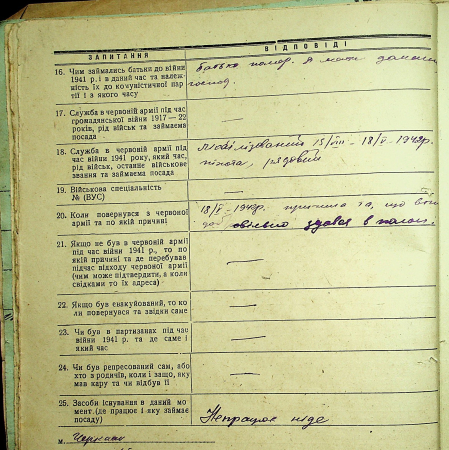 ЗАПИТАННЯ
ВІДПОВІДІ
16. Чим займались батьки до війни
1941 р. і в даний час та належ-
ність їх до комуністичної пар-
тії і з якого часу
17. Служба в червоній армії під час
громадянської війни 1917—22
років, рід військ та займаєма
посада
—
18. Служба в червоній армії під
час війни 1941 року, який час,
рід військ, останнє військове
звання та займаєма посада
мобілізований 15/VIII - 18/V - 1942р.
піхота, рядовий
19. Військова спеціальність
№ (ВУС)
—
20. Коли повернувся з червоної
армії та по якій причині
18/V - 1942р. причина та, що
21. Якщо не був в червоній армії
під час війни 1941 р., то по
якій причині та де перебував
підчас відходу червоної армії
(чим може підтвердити, а коли
свідками то їх адреса)
—
22. Якщо був евакуйований, то ко-
ли повернувся та звідки саме
—
23. Чи був в партизанах під час
війни 1941 р. та де саме і
який час
—
24. Чи був репресований сам, або
хто з родичів, коли і защо, яку
мав кару та чи відбув її
—
25. Засоби існування в даний мо-
мент (де працює і яку займає
посаду)
Непрацює ніде
м.